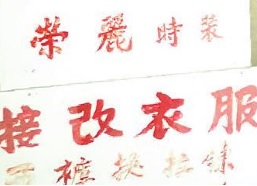 榮麗時裝
接改衣服
褲換拉鍊